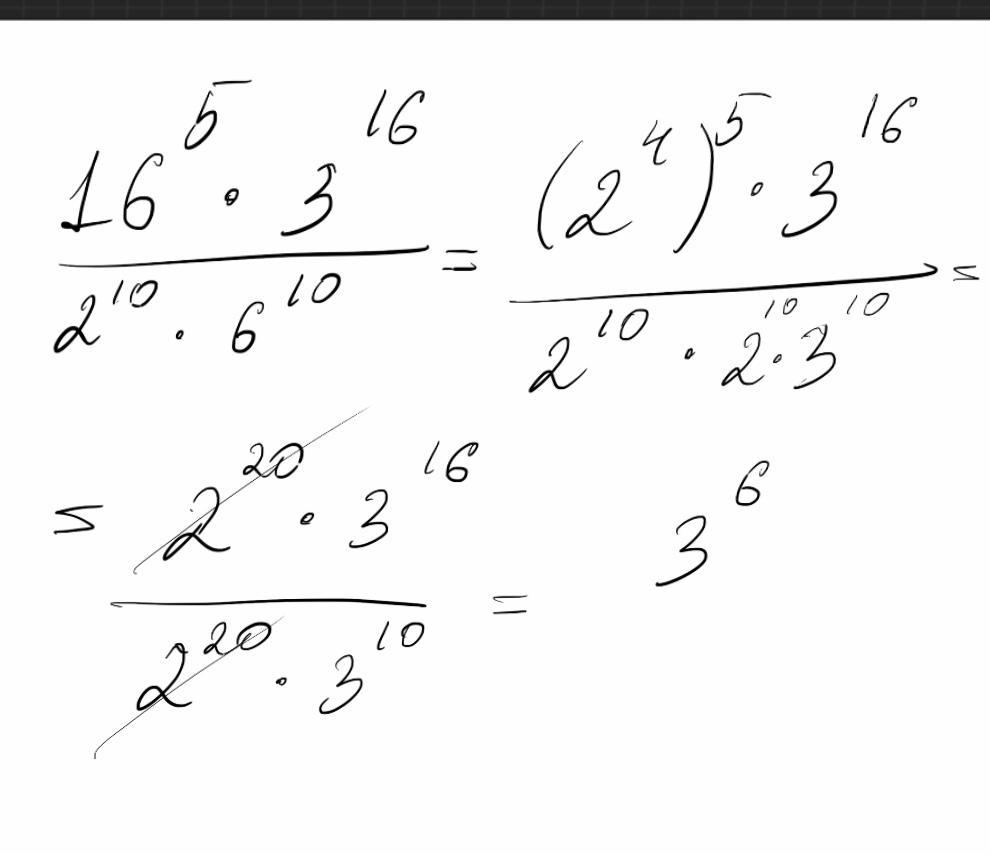 16^5 · 3^16 / 2^10 · 6^10 = (2^4)^5 · 3^16 / 2^10 · 2^10 · 3^10 =
= 2^20 · 3^16 / 2^20 · 3^10 = 3^6